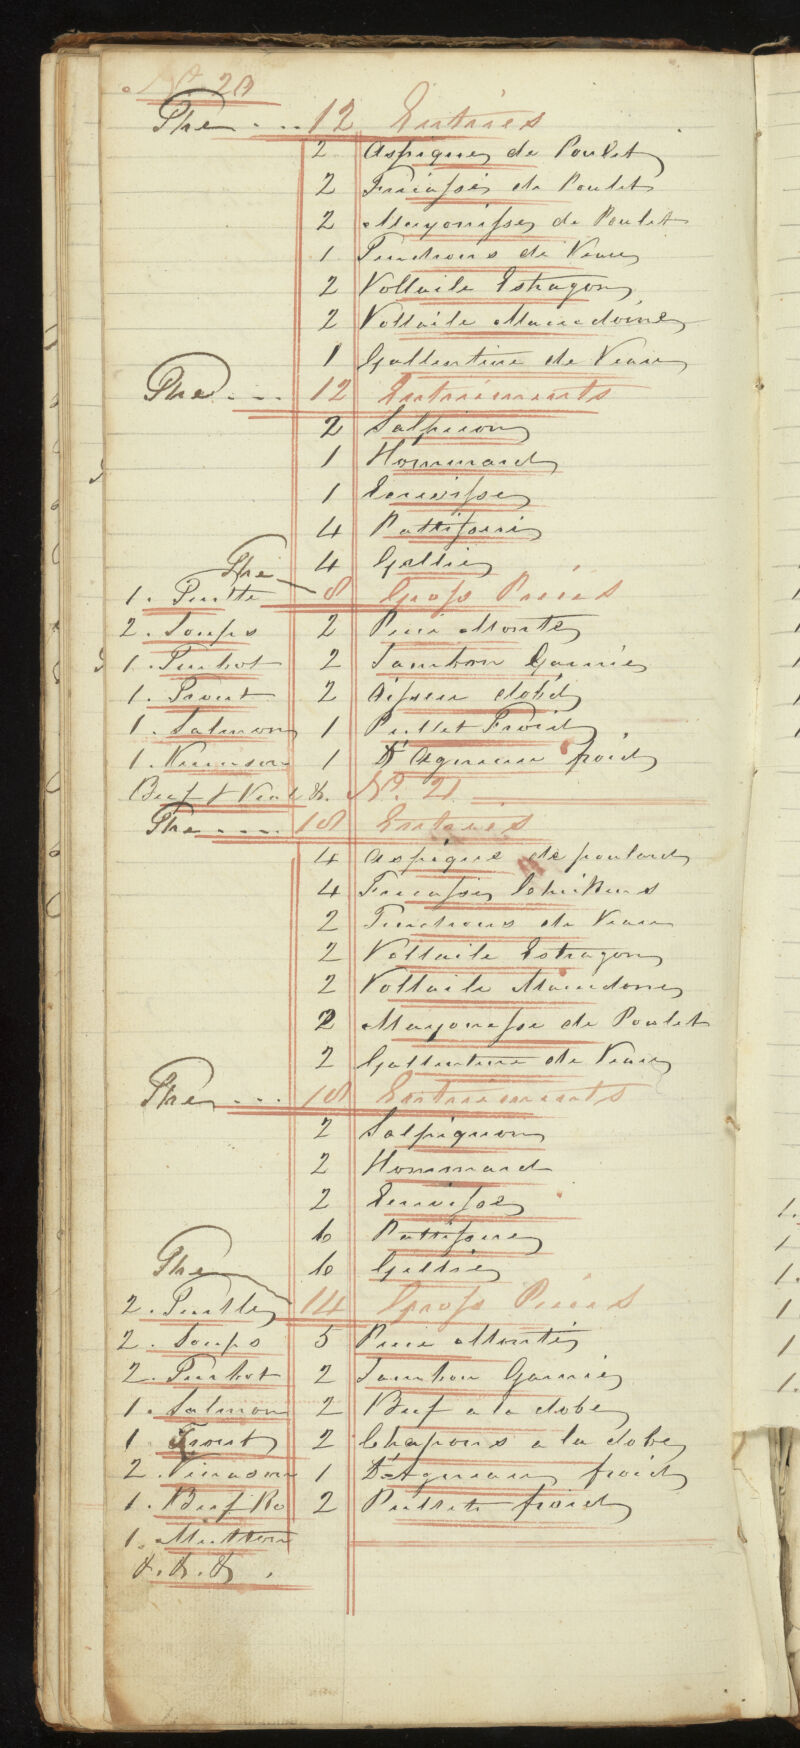 No. 20
The .... 12 Entries
2 Aspigue de Poulet
2 Fricassi de Poulet
2 Mayonisse de Poulet
1 Tendrons de Veau
2 Vollaile Estragon
2 Vollaile Macedoine
1 Gallentine de Veau
The .... 12 Entriements
2 Salpicon
1 Hommard
1 Ecrevisse
4 Pattisserie
4 Gellie
The 8 Gross Pieces
1. Turtle
2. Soups 2 Piece Monte
1. Turbot 2 Jambon Garnie
1. Trout 2 dobé
1. Salmon 1 Pullet Froid
1. Venison 1 D'Agneau froid
Beef & Veal &. No. 21
The .... 18 Entries
4 Aspigue de poulard
4 Fricassi Chickens
2 Tendrons de Veau
2 Vollaile Estragon
2 Vollaile Macedone
2 Mayonesse de Poulet
2 Gallentine de Veau
The .... 18 Entriements
2 Salpiquon
2 Hommard
2 Ecrevisse
6 Pattisserie
6 Gellie
The
2. Turtle 14 Gross Pieces
2. Soups 5 Piece Monté
2. Turbot 2 Jambon Garnie
1. Salmon 2 Beef a la dobe
1. Trout 2 Chapons a la dobe
2. Vinason 1 D'Agneau froid
1. Beef Ro 2 Pullet froid
1. Mutton
&. &. &.